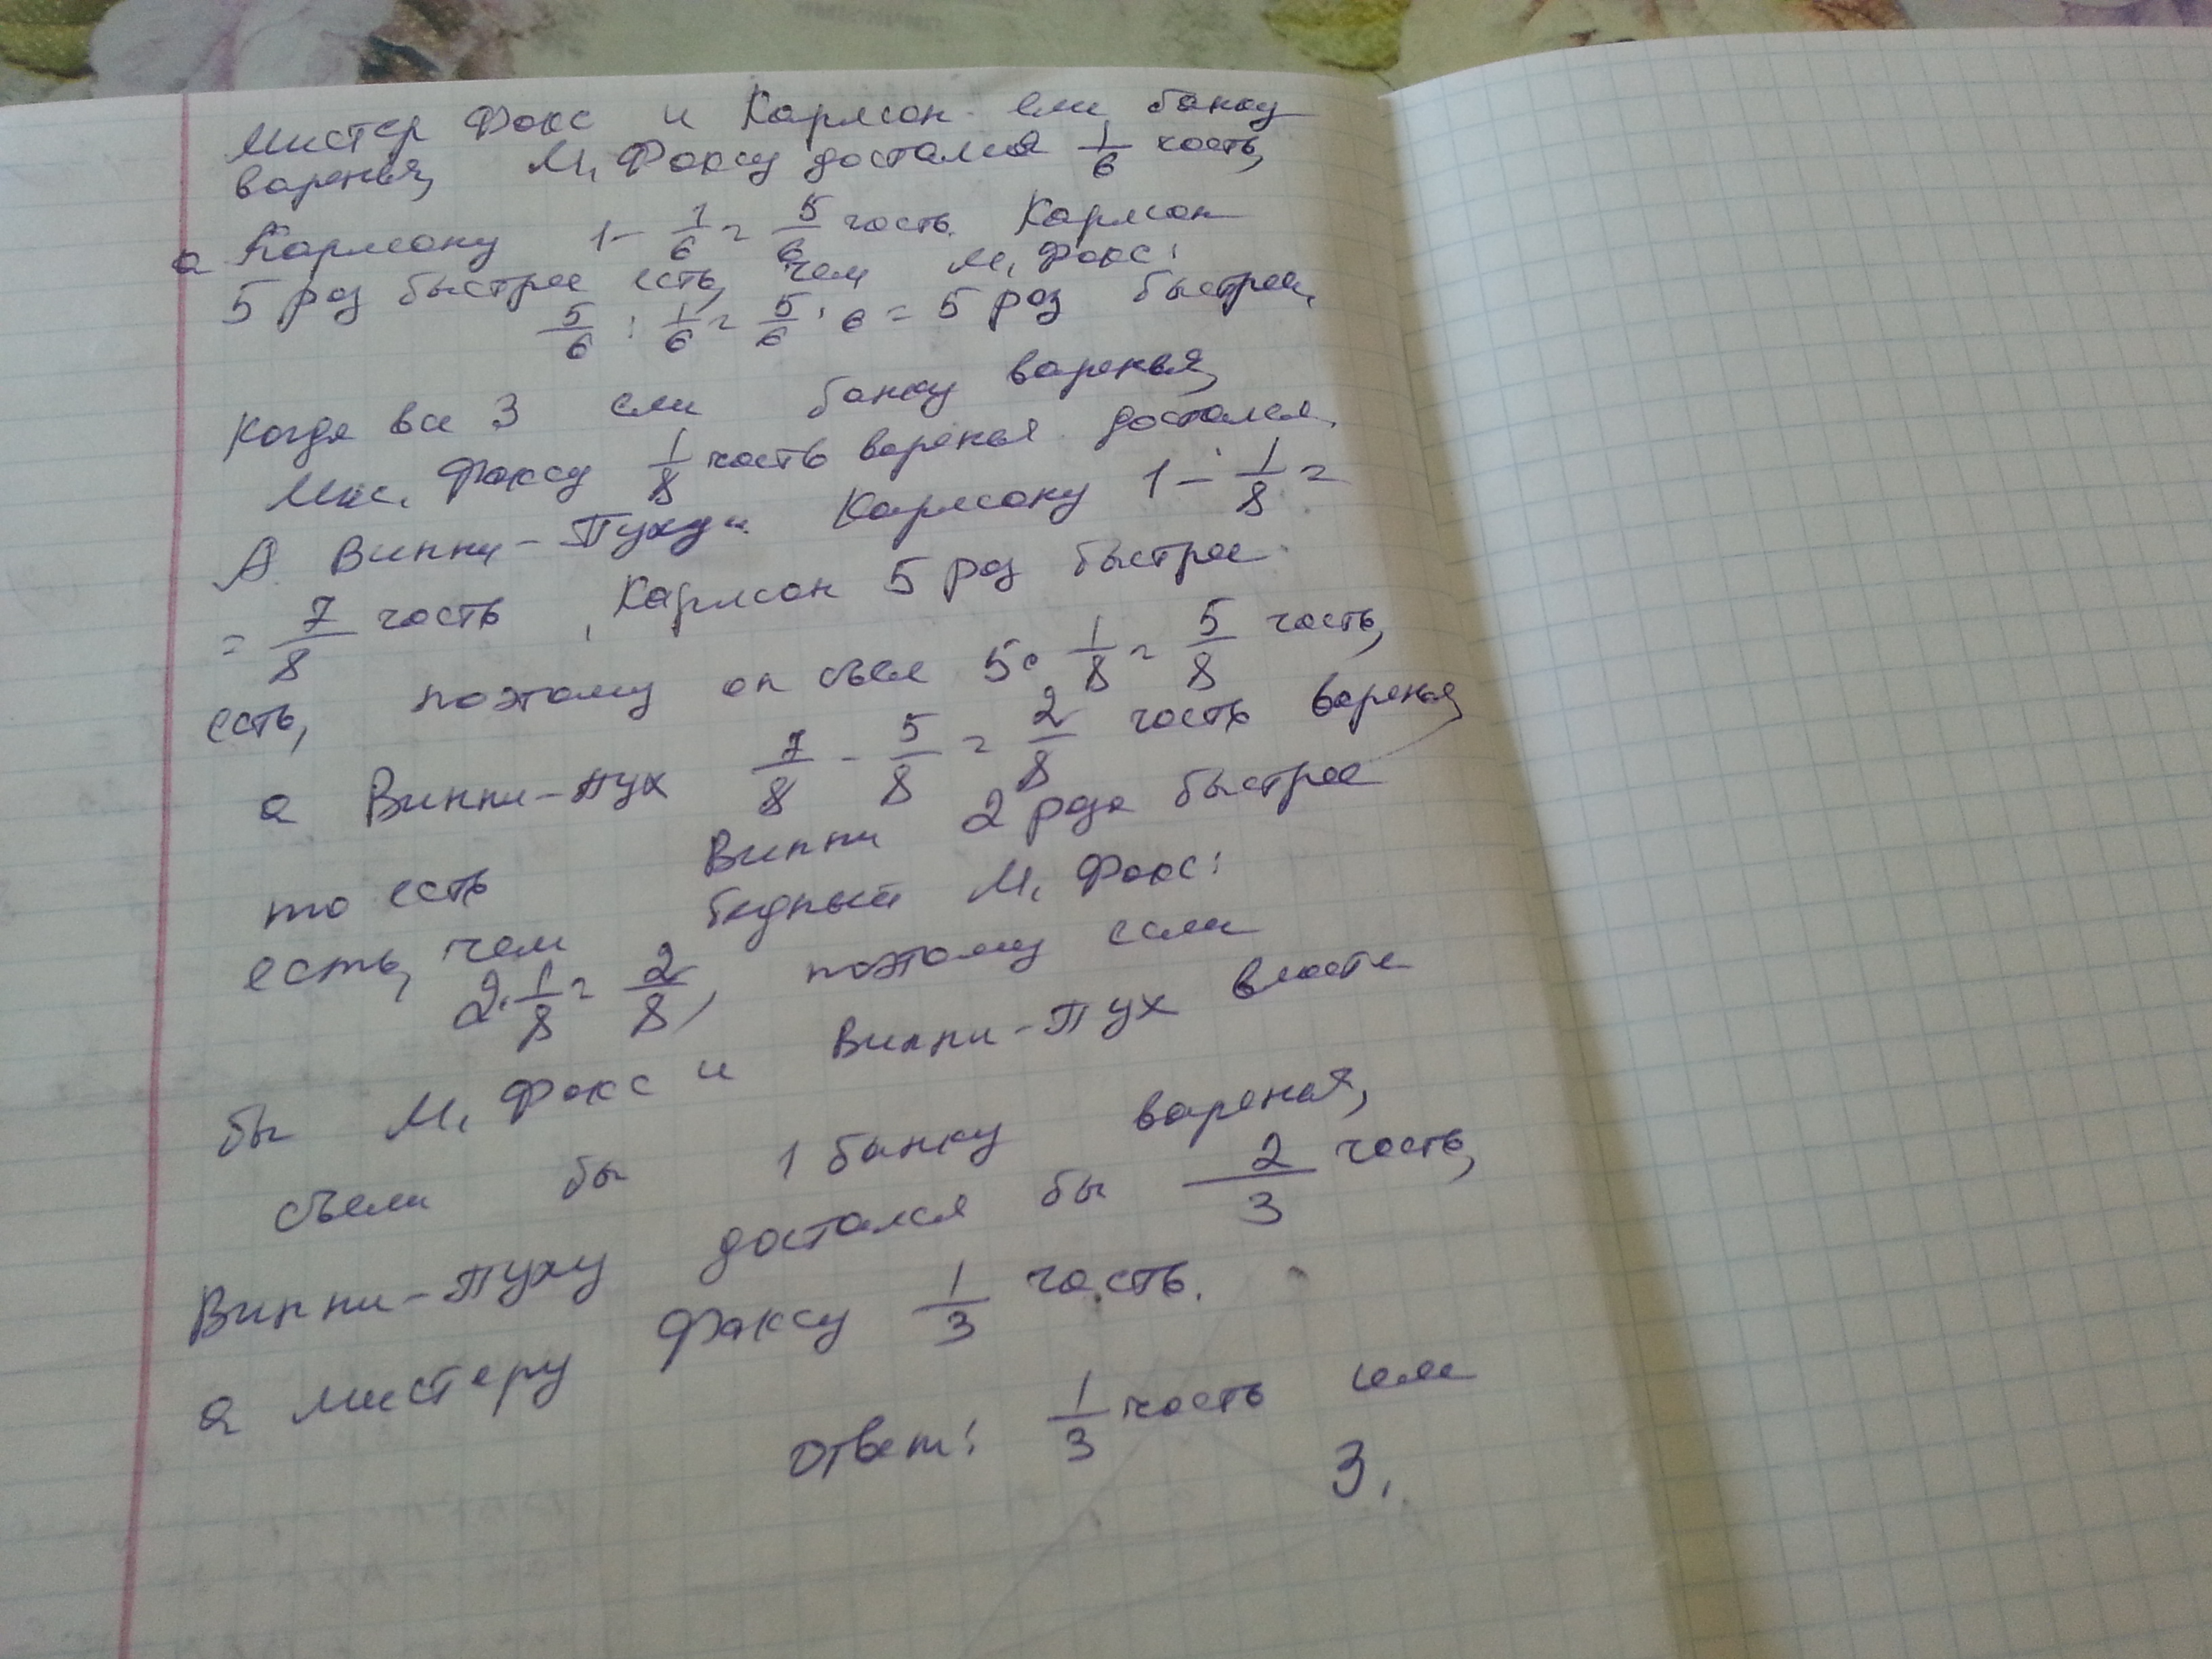 Мистер Фокс и Карлсон ели банку
варенья, М. Фоксу достался 1/6 часть,
а Карлсону 1 - 1/6 = 5/6 часть. Карлсон
5 раз быстрее есть, чем М. Фокс:
5/6 : 1/6 = 5/6 · 6 = 5 раз быстрее.
Когда все 3 ели банку варенья,
Мис. Фоксу 1/8 часть варенья достался.
А Винни-Пуху и Карлсону 1 - 1/8 =
= 7/8 часть, Карлсон 5 раз быстрее
есть, поэтому он съел 5 · 1/8 = 5/8 часть,
а Винни-Пух 7/8 - 5/8 = 2/8 часть варенья,
то есть Винни 2 раза быстрее
есть, чем бедный М. Фокс:
2 · 1/8 = 2/8, поэтому если
бы М. Фокс и Винни-Пух вместе
съели бы 1 банку варенья,
Винни-Пуху достался бы 2/3 часть,
а мистеру Фоксу 1/3 часть.
Ответ: 1/3 часть или
3.